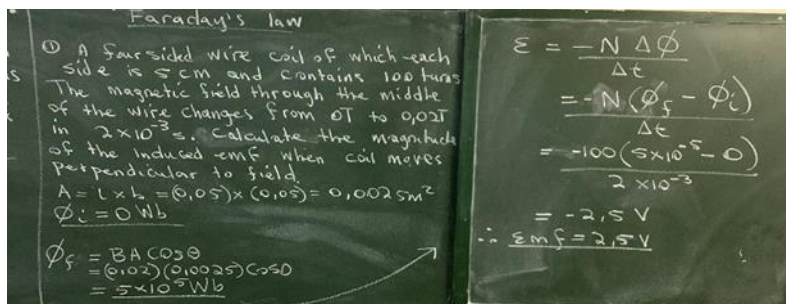 Faraday's law
① A four sided wire coil of which each
side is 5 cm and contains 100 turns
The magnetic field through the middle
of the wire changes from 0T to 0,02T
in 2×10⁻³s. Calculate the magnitude
of the induced emf when coil moves
perpendicular to field.
A = l × b = (0,05) × (0,05) = 0,0025m²
Φi = 0 Wb
Φf = BA Cosθ
= (0,02)(0,0025)Cos0
= 5×10⁻⁵Wb
ε = -N ΔΦ
Δt
= -N (Φf - Φi)
Δt
= -100(5×10⁻⁵ - 0)
2 ×10⁻³
= -2,5 V
∴ Emf = 2,5 V